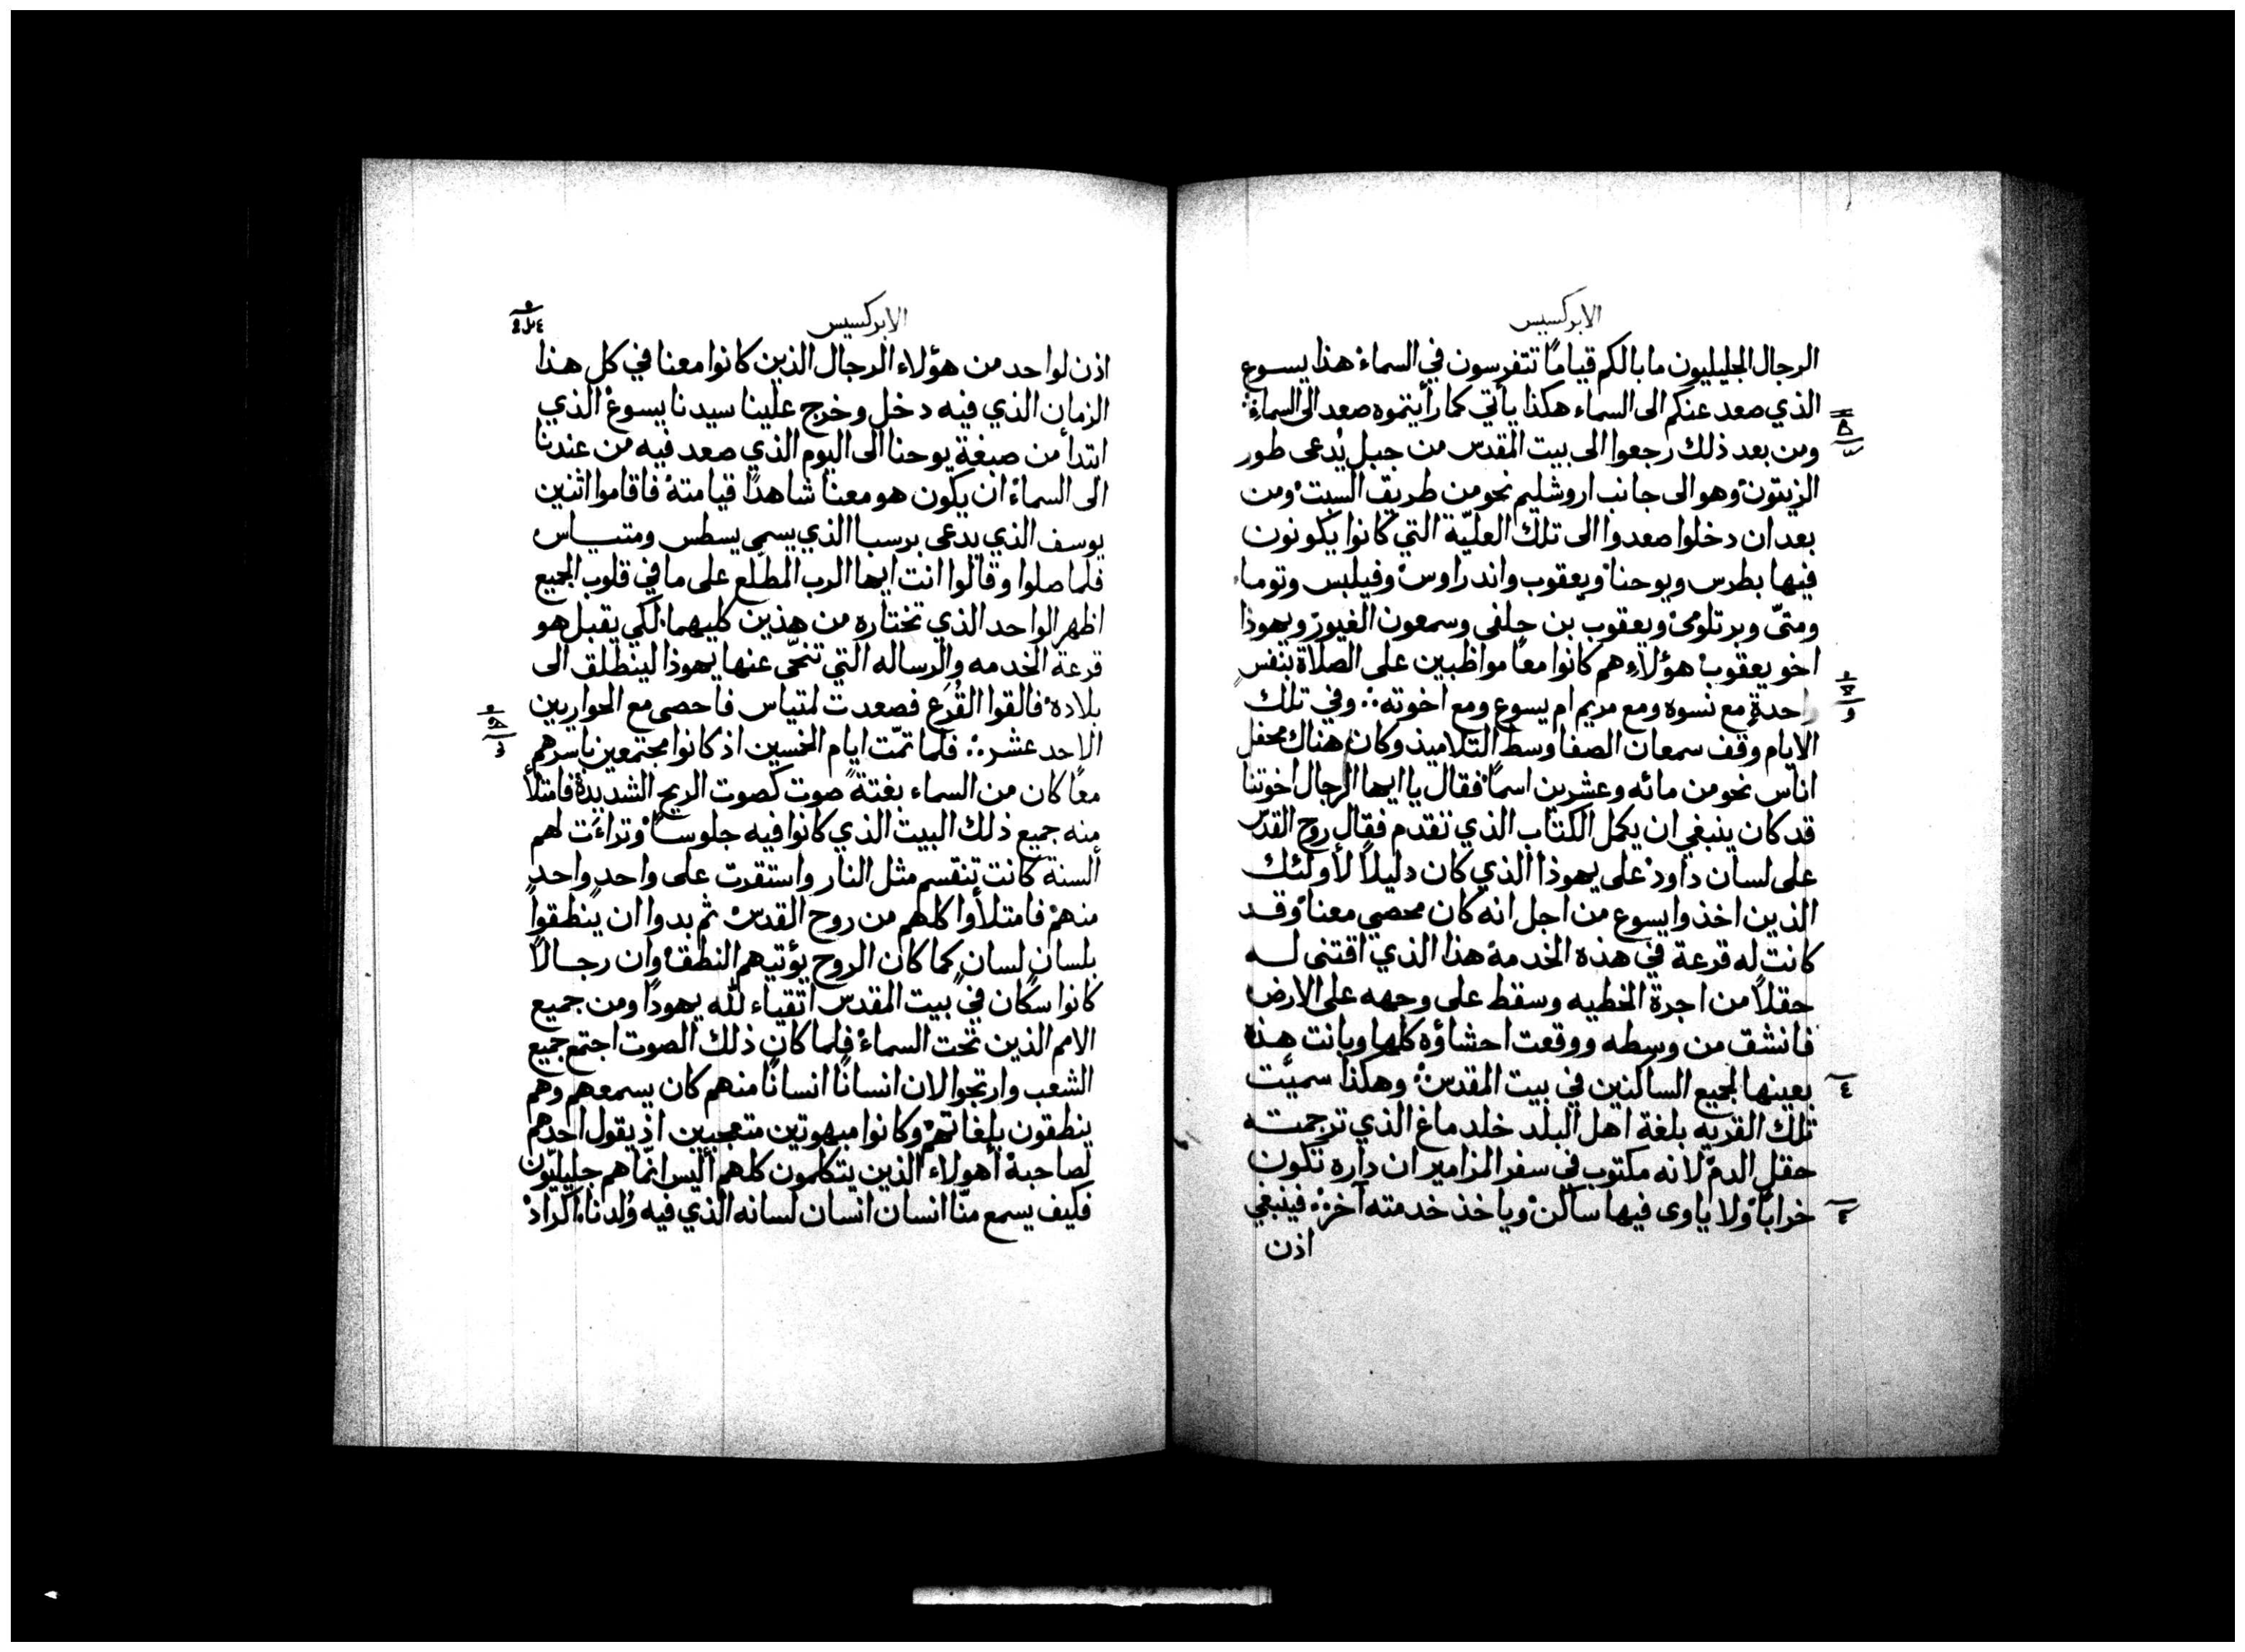 الابركسيس
الرجال الجليليون ما بالكم قيامًا تتفرسون في السماء هذا يسوع
الذي صعد عنكم الى السماء هكذا يأتي كما رأيتموه صعد الى السماء
ومن بعد ذلك رجعوا الى بيت المقدس من جبل يُدعى طور
الزيتون وهو الى جانب اروشليم نحو من طريق السبت ومن
بعد ان دخلوا صعدوا الى تلك العليّة التي كانوا يكونون
فيها بطرس ويوحنا ويعقوب واندراوس وفيلبس وتوما
ومتىّ وبرتلومى ويعقوب بن حلفى وسمعون الغيور ويهوذا
اخو يعقوب هؤلاء هم كانوا معاً مواظبين على الصلاة بنفس
واحدةٍ مع نسوه ومع مريم ام يسوع ومع اخوته وفي تلك
الايام وقف سمعان الصفا وسط التلاميذ وكان هناك محفل
اناس نحو من مائه وعشرين اسماً فقال يا ايها الرجال اخوتنا
قد كان ينبغي ان يكمل الكتاب الذي تقدم فقال روح القدس
على لسان داود على يهوذا الذي كان دليلاً لأولئك
الذين اخذوا يسوع من اجل انه كان محصي معنا وقد
كانت له قرعة في هذه الخدمة هذا الذي اقتنى له
حقلاً من اجرة الخطيه وسقط على وجهه على الارض
فانشق من وسطه ووقعت احشاؤه كلها وبانت هذه
٤ بعينها لجميع الساكنين في بيت المقدس وهكذا سميّت
تلك القريه بلغة اهل البلد خلد ماغ الذي ترجمته
حقل الدم لانه مكتوب في سفر المزامير ان داره تكون
خرابًا ولا ياوى فيها ساكن وياخذ خدمته آخر فينبغي
اذن
الابركسيس
اذن لواحد من هؤلاء الرجال الذين كانوا معنا في كل هذا
الزمان الذي فيه دخل وخرج علينا سيدنا يسوع الذي
ابتدأ من صبغة يوحنا الى اليوم الذي صعد فيه من عندنا
الى السماء ان يكون هو معنا شاهدًا قيامته فاقاموا اثنين
يوسف الذي يدعى برسبا الذي يسمى يسطس ومتياس
فلما صلوا وقالوا انت ايها الرب المطّلع على ما في قلوب الجميع
اظهر الواحد الذي تختاره من هذين كليهما لكي يقبل هو
قرعة الخدمه والرساله التي تنحّى عنها يهوذا لينطلق الى
بلاده فالقوا القُرَع فصعدت لمتياس فاحصى مع الحواريين
الاحد عشر فلما تمّت ايام الخمسين اذ كانوا مجتمعين باسرهم
معاً كان من السماء بغتةً صوت كصوت الريح الشديدة فامتلأ
منه جميع ذلك البيت الذي كانوا فيه جلوساً وتراءَت لهم
ألسنة كانت تنقسم مثل النار واستقرت على واحدٍ واحدٍ
منهم فامتلأوا كلهم من روح القدس ثم بدوا ان ينطقوا
بلسانٍ لسانٍ كما كان الروح يؤتيهم النطق وان رجالاً
كانوا سكّان في بيت المقدس اتقياء لله يهودًا ومن جميع
الامم الذين تحت السماء فلما كان ذلك الصوت اجتمع جميع
الشعب وارتجوا لان انسانًا انسانًا منهم كان يسمعهم وهم
ينطقون بلغاتهم وكانوا مبهوتين متعجبين اذ يقول احدهم
لصاحبه أهولاء الذين يتكلمون كلهم أليس انّما هم جليليّون
فكيف يسمع منّا انسان انسان لسانه الذي فيه وُلدنا اكراد